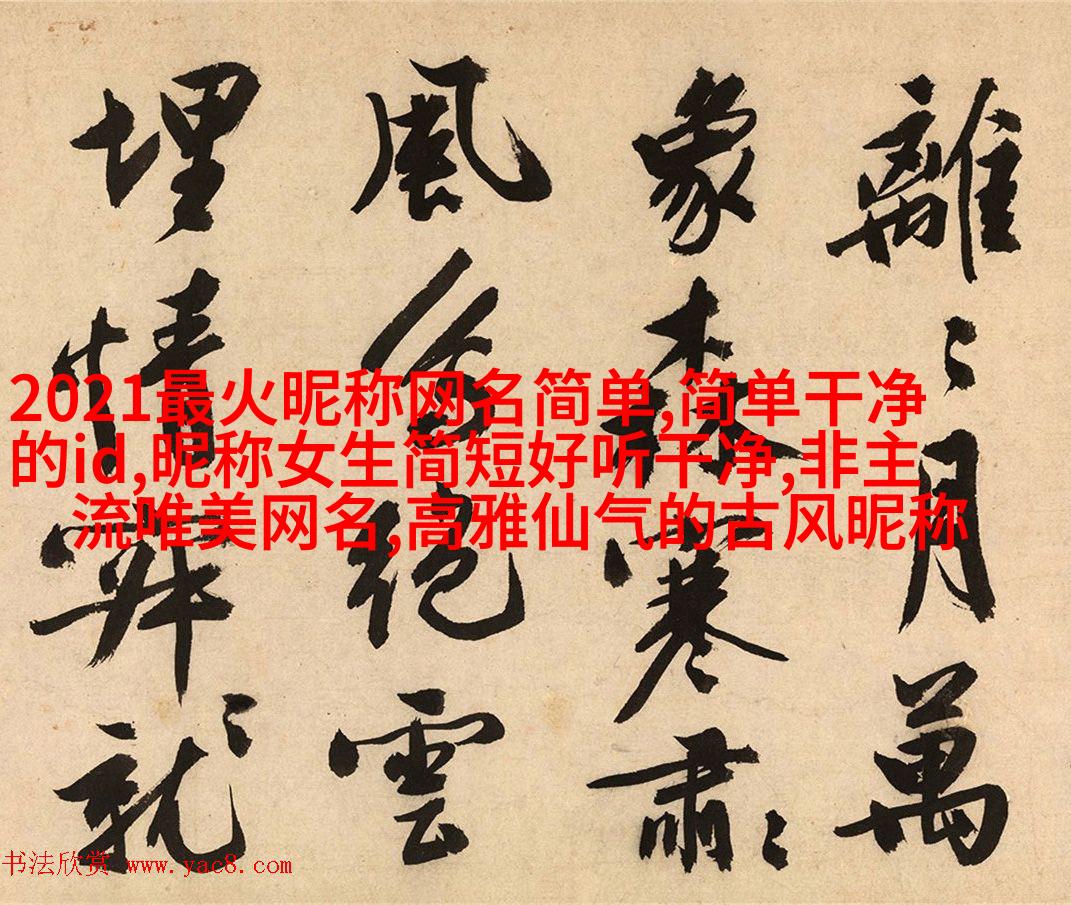 離〻月萬
象森寒肅〻
風絕雲
埋情就〻
2021最火昵称网名简单,简单干净
的id,昵称女生简短好听干净,非主
流唯美网名,高雅仙气的古风昵称
书法欣赏 www.yac8.com